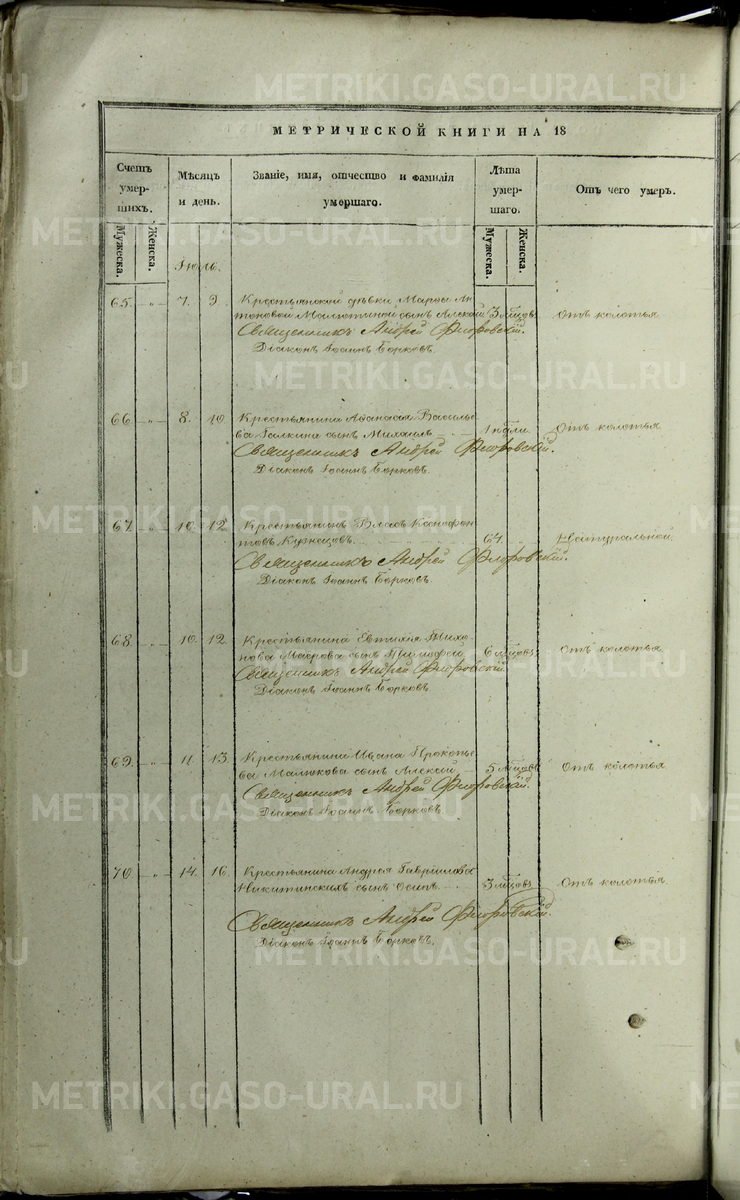 METRIKI.GASO-URAL.RU
МЕТРИЧЕСКОЙ КНИГИ НА 18
Счетъ умер-шихъ.
Мужеска. Женска.
Мѣсяцъ и день.
Званіе, имя, отчество и фамилія
умершаго.
Лѣта умер-шаго.
Мужеска. Женска.
Отъ чего умеръ.
Іюль.
65 " 7. 9. Крестьянской дѣвки Марѳы Ан-
тоновой сынъ Алексѣй 3 мѣцовъ. Отъ колотья
Священникъ Андрей Флоровскій.
Діаконъ Іоаннъ Борковъ.
66 " 8. 10 Крестьянина Аѳанасія Василье-
ва Галкина сынъ Михаилъ 1 нѣли Отъ колотья
Священникъ Андрей Флоровскій.
Діаконъ Іоаннъ Борковъ.
67 " 10. 12. Крестьянинъ Власъ Ксенофон-
товъ Кузнецовъ 64. Натуральной
Священникъ Андрей Флоровскій.
Діаконъ Іоаннъ Борковъ.
68 " 10. 12. Крестьянина Евтихія Тихо-
нова сынъ Тимоѳей 6 мѣцовъ Отъ колотья
Священникъ Андрей Флоровскій
Діаконъ Іоаннъ Борковъ
69. " 11. 13. Крестьянина Ивана Прокопье-
ва Малюкова сынъ Алексѣй 5 мѣцовъ Отъ колотья
Священникъ Андрей Флоровскій.
Діаконъ Іоаннъ Борковъ.
70 " 14. 16. Крестьянина Андрея Гаврилова
Никитинскихъ сынъ Осипъ 3 мѣцовъ Отъ колотья
Священникъ Андрей Флоровскій.
Діаконъ Іоаннъ Борковъ.